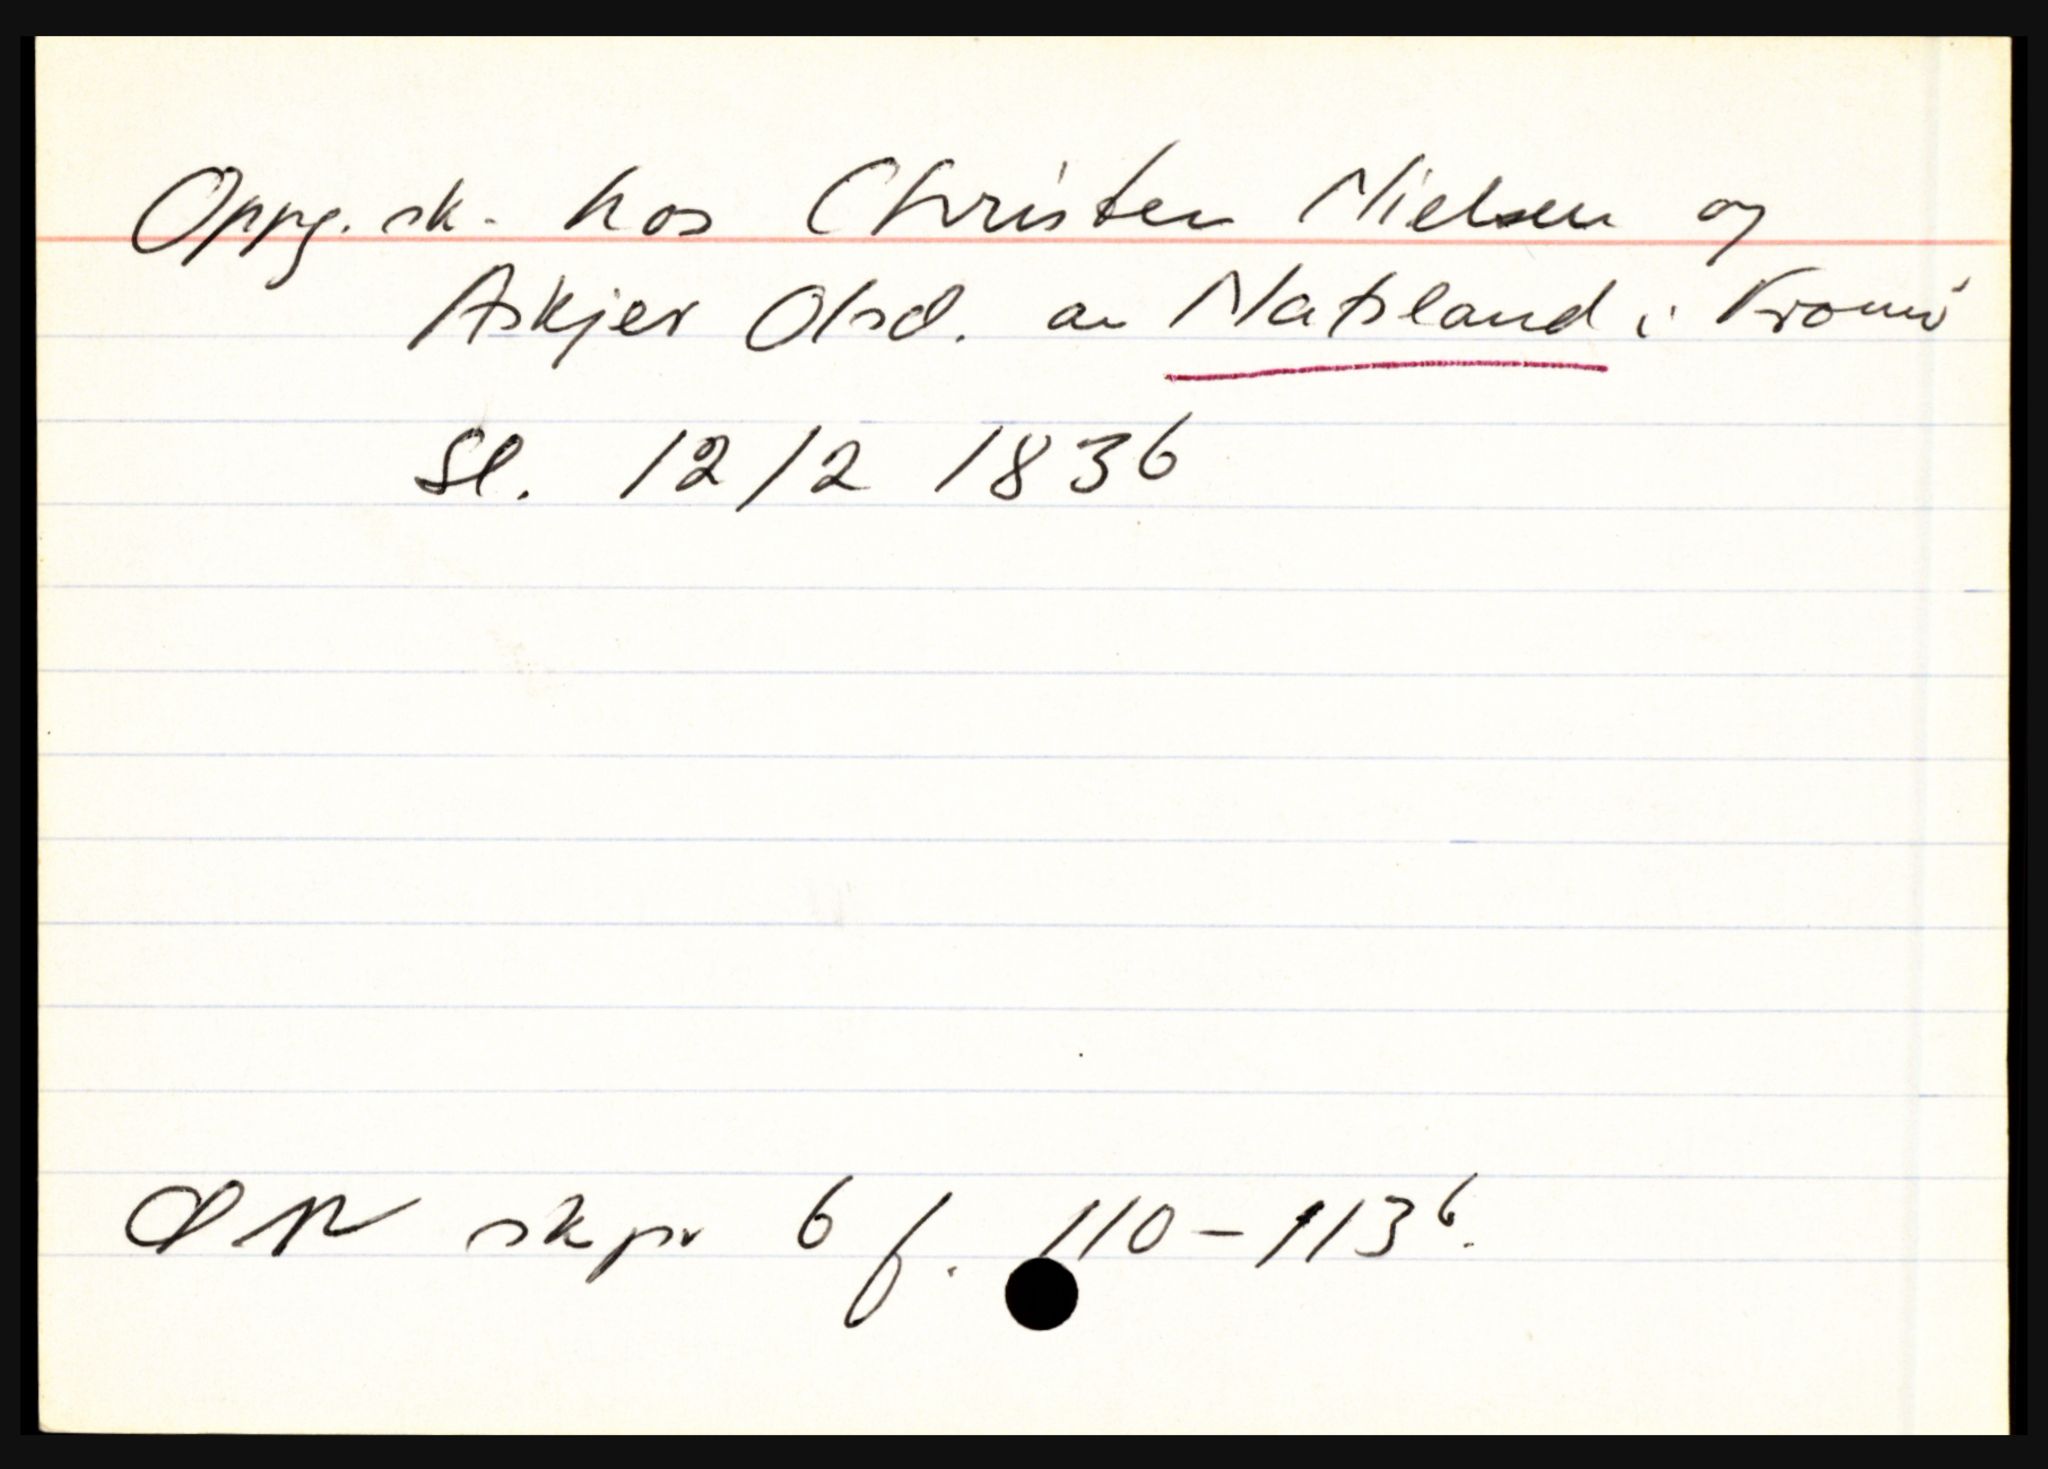 Oppg. sk. hos Christen Nielsen og
Askjer Olsd. av Natseland i Fromi
Sl. 12/2 1836
ØNR skpr 6 f. 110 - 113b.